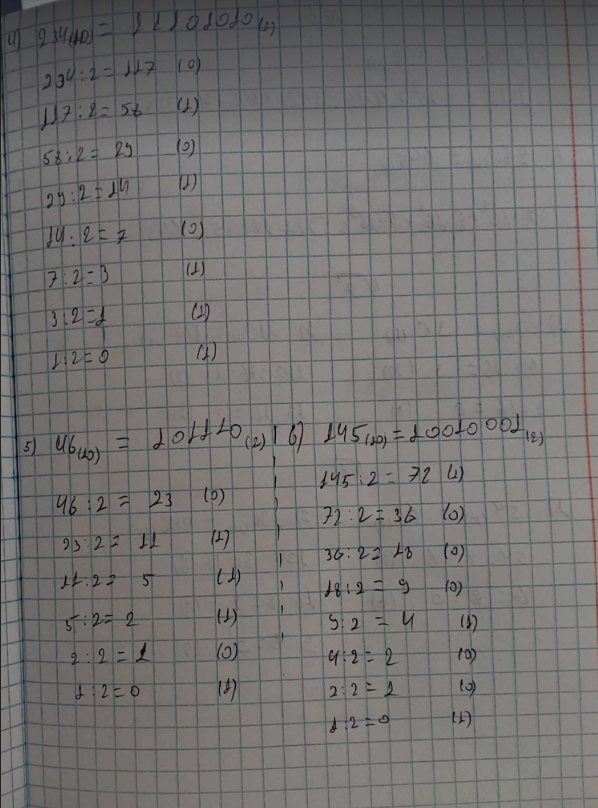 4) 234(10) = 11101010(2)
234:2=117 (0)
117:2=58 (1)
58:2=29 (0)
29:2=14 (1)
14:2=7 (0)
7:2=3 (1)
3:2=1 (1)
1:2=0 (1)
5) 46(10) = 101110(2)
46:2=23 (0)
23:2=11 (1)
11:2=5 (1)
5:2=2 (1)
2:2=1 (0)
1:2=0 (1)
6) 145(10)=10010001(2)
145:2=72 (1)
72:2=36 (0)
36:2=18 (0)
18:2=9 (0)
9:2=4 (1)
4:2=2 (0)
2:2=1 (0)
1:2=0 (1)